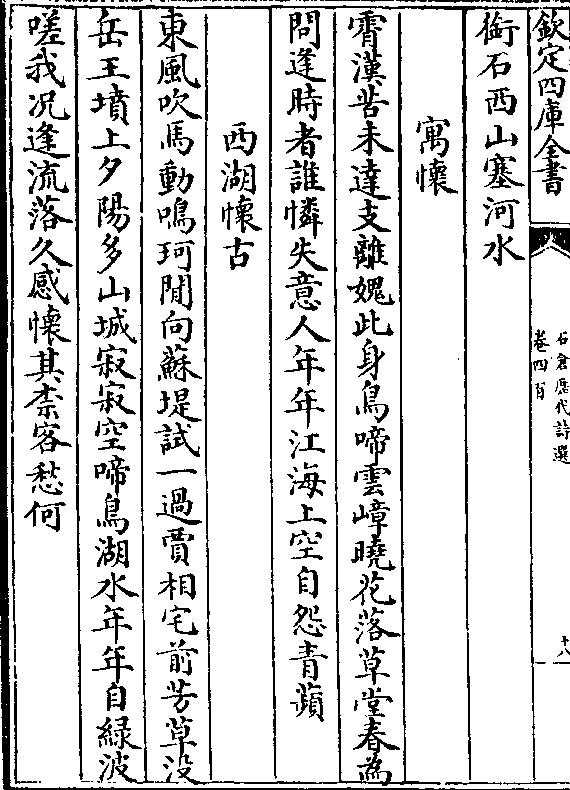 欽定四庫全書
石倉歷代詩選
卷四百
十八
銜石西山塞河水
寓懷
霄漢苦未達支離媿此身鳥啼雲嶂曉花落草堂春為
問逢時者誰憐失意人年年江海上空自怨青蘋
西湖懷古
東風吹馬動鳴珂閒向蘇堤試一過賈相宅前芳草没
岳王墳上夕陽多山城寂寂空啼鳥湖水年年自緑波
嗟我况逢流落久感懷其柰客愁何